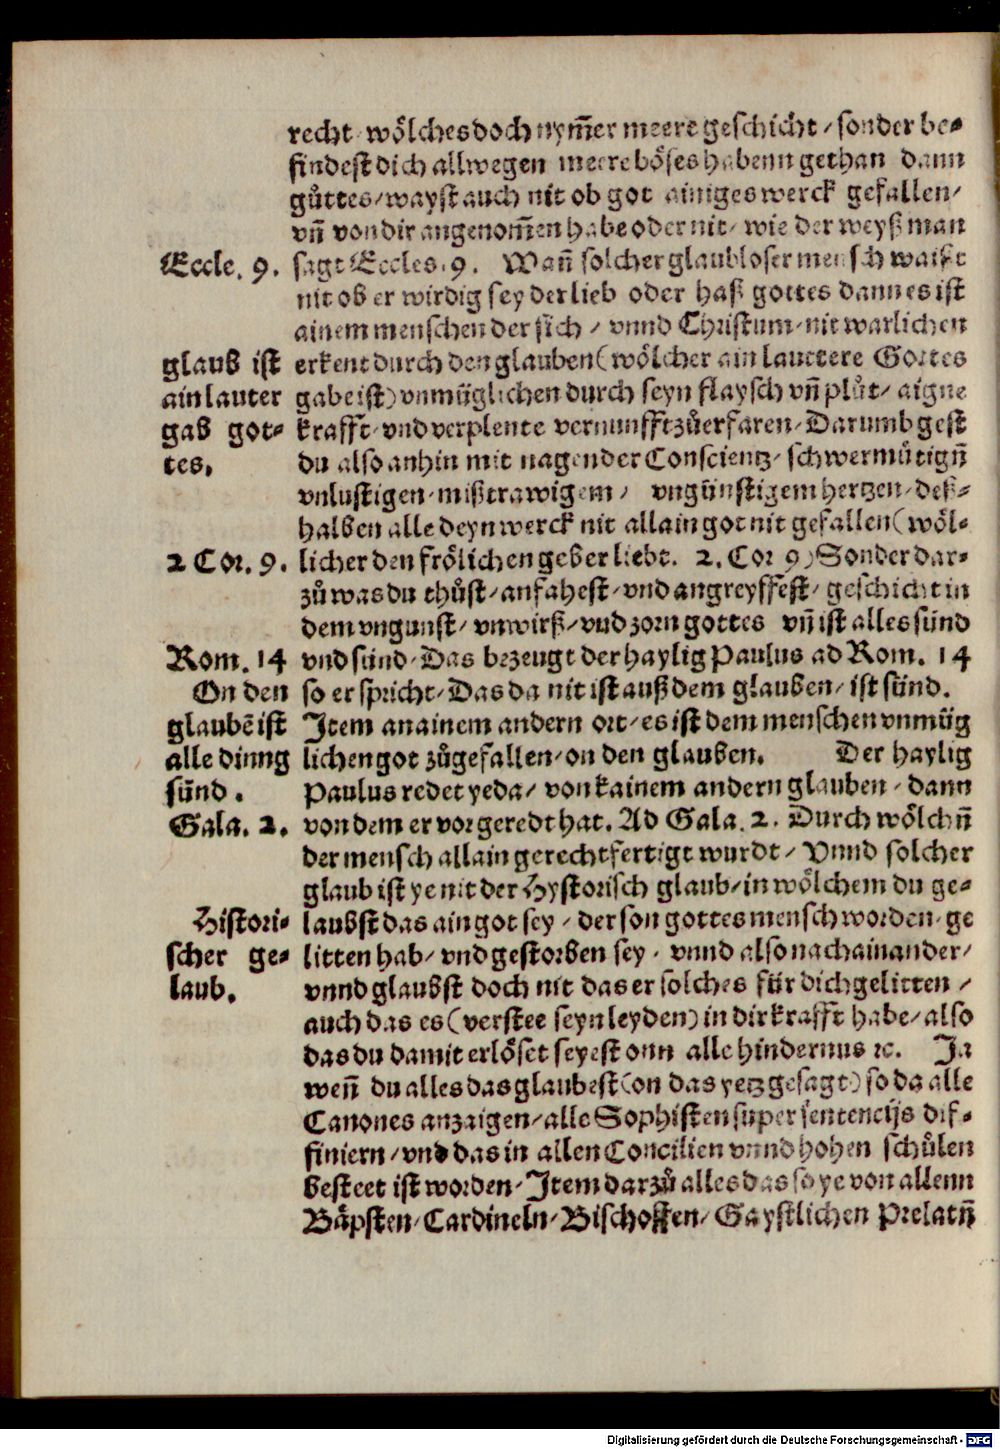 recht wölches doch nym̄er meere geschicht / sonder be-
findest dich allwegen meere böses habenn gethan dann
gůttes / wayst auch nit ob got ainiges werck gefallen /
vn̄ von dir angenom̄en habe oder nit / wie der weyß man
Eccle. 9.
sagt Eccles. 9. Wan̄ solcher glaubloser mensch waist
nit ob er wirdig sey der lieb oder haß gottes dann es ist
ainem menschen der sich / vnnd Christum nit warlichen
glaub ist
ain lauter
gab got-
tes.
erkent durch den glauben (wölcher ain lauttere Gottes
gabe ist) vnmüglichen durch seyn flaysch vn̄ plůt / aigne
krafft / vnd verplente vernunfft zůerfaren / Darumb gest
du also anhin mit nagender Conscientz / schwermütign̄
vnlustigen / mißtrawigem / vngünstigem hertzen / deß-
halben alle deyn werck nit allain got nit gefallen (wöl-
2 Cor. 9.
licher den frölichen geber liebt. 2. Cor 9) Sonder dar-
zů was du thůst / anfahest / vnd angreyffest / geschicht in
dem vngunst / vnwirß / vnd zorn gottes vn̄ ist alles sünd
Rom. 14
vnd sünd / Das bezeugt der haylig Paulus ad Rom. 14
On den
glaubē ist
alle dinng
sünd.
so er spricht / Das da nit ist auß dem glauben / ist sünd.
Item an ainem andern ort / es ist dem menschen vnmüg
lichen got zůgefallen / on den glauben. Der haylig
Paulus redet yeda / von kainem andern glauben / dann
Gala. 2.
von dem er vor geredt hat. Ad Gala. 2. Durch wölchn̄
der mensch allain gerechtfertigt wurdt / Vnnd solcher
glaub ist ye nit der Hystorisch glaub / in wölchem du ge-
Histori-
scher ge-
laub.
laubst das ain got sey / der son gottes mensch worden / ge
litten hab / vnd gestorben sey / vnnd also nachainander /
vnnd glaubst doch nit das er solches für dich gelitten /
auch das es (verstee seyn leyden) in dir krafft habe / also
das du damit erlöset seyest onn alle hindernus ⁊c. Ja
wen̄ du alles das glaubest (on das yetz gesagt) so da alle
Canones anzaigen / alle Sophisten super sentencijs dif-
finiern / vnd das in allen Concilien vnnd hohen schůlen
besteet ist worden / Item darzů alles das so ye von allenn
Bäpsten / Cardineln / Bischoffen / Gaystlichen Prelatn̄
Digitalisierung gefördert durch die Deutsche Forschungsgemeinschaft - DFG